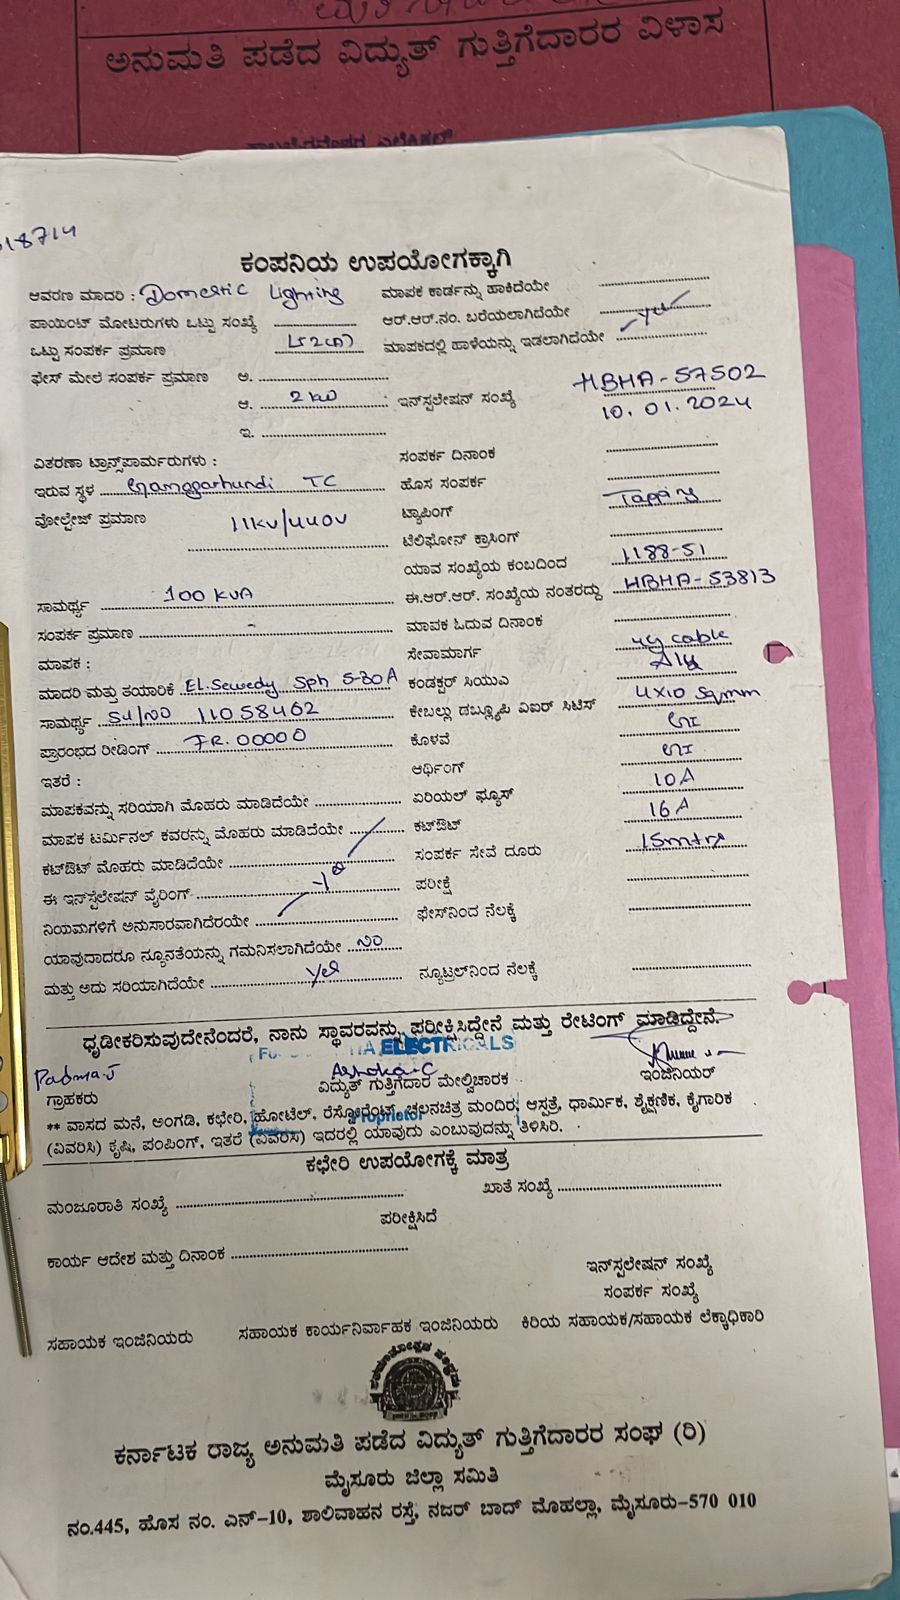 ಅನುಮತಿ ಪಡೆದ ವಿದ್ಯುತ್ ಗುತ್ತಿಗೆದಾರರ ವಿಳಾಸ
18714
ಕಂಪನಿಯ ಉಪಯೋಗಕ್ಕಾಗಿ
ಆವರಣ ಮಾದರಿ : Domestic Lighting ಮಾಪಕ ಕಾರ್ಡನ್ನು ಹಾಕಿದೆಯೇ
ಪಾಯಿಂಟ್ ಮೋಟರುಗಳು ಒಟ್ಟು ಸಂಖ್ಯೆ ಆರ್.ಆರ್.ನಂ. ಬರೆಯಲಾಗಿದೆಯೇ Yes
ಒಟ್ಟು ಸಂಪರ್ಕ ಪ್ರಮಾಣ ಮಾಪಕದಲ್ಲಿ ಹಾಳೆಯನ್ನು ಇಡಲಾಗಿದೆಯೇ
ಫೇಸ್ ಮೇಲೆ ಸಂಪರ್ಕ ಪ್ರಮಾಣ ಅ.
ಆ. 2 kW ಇನ್‌ಸ್ಟಲೇಷನ್ ಸಂಖ್ಯೆ HBHA-57502
10.01.2024
ಇ.
ವಿತರಣಾ ಟ್ರಾನ್ಸ್‌ಪಾರ್ಮರುಗಳು : ಸಂಪರ್ಕ ದಿನಾಂಕ
ಇರುವ ಸ್ಥಳ TC ಹೊಸ ಸಂಪರ್ಕ
ವೋಲ್ಟೇಜ್ ಪ್ರಮಾಣ 11KV/440V ಟ್ಯಾಪಿಂಗ್ Tapping
ಟೆಲಿಫೋನ್ ಕ್ರಾಸಿಂಗ್
ಯಾವ ಸಂಖ್ಯೆಯ ಕಂಬದಿಂದ 1188-51
ಸಾಮರ್ಥ್ಯ 100 KVA ಈ.ಆರ್.ಆರ್. ಸಂಖ್ಯೆಯ ನಂತರದ್ದು HBHA-53813
ಸಂಪರ್ಕ ಪ್ರಮಾಣ - ಮಾಪಕ ಓದುವ ದಿನಾಂಕ
ಮಾಪಕ : ಸೇವಾಮಾರ್ಗ cable
ಮಾದರಿ ಮತ್ತು ತಯಾರಿಕೆ El.Sewedy Sph 5-30A ಕಂಡಕ್ಟರ್ ಸಿಯುವಿ
ಸಾಮರ್ಥ್ಯ Sl/NO 11058462 ಕೇಬಲ್ಲು ಡಬ್ಲ್ಯೂಪಿ ವಿಐರ್ ಸಿಟಿಸ್ 4x10 Sqmm
ಪ್ರಾರಂಭದ ರೀಡಿಂಗ್ FR. 00000 ಕೊಳವೆ GI
ಇತರೆ : ಆರ್ಥಿಂಗ್ GI
ಮಾಪಕವನ್ನು ಸರಿಯಾಗಿ ಮೊಹರು ಮಾಡಿದೆಯೇ ಏರಿಯಲ್ ಫ್ಯೂಸ್ 10A
ಮಾಪಕ ಟರ್ಮಿನಲ್ ಕವರನ್ನು ಮೊಹರು ಮಾಡಿದೆಯೇ ಕಟ್‌ಔಟ್ 16A
ಕಟ್‌ಔಟ್ ಮೊಹರು ಮಾಡಿದೆಯೇ ಸಂಪರ್ಕ ಸೇವೆ ದೂರು 15mtrs
ಈ ಇನ್‌ಸ್ಟಲೇಷನ್ ವೈರಿಂಗ್ Yes ಪರೀಕ್ಷೆ
ನಿಯಮಗಳಿಗೆ ಅನುಸಾರವಾಗಿದೆರಯೇ ಫೇಸ್‌ನಿಂದ ನೆಲಕ್ಕೆ
ಯಾವುದಾದರೂ ನ್ಯೂನತೆಯನ್ನು ಗಮನಿಸಲಾಗಿದೆಯೇ No
ಮತ್ತು ಅದು ಸರಿಯಾಗಿದೆಯೇ Yes ನ್ಯೂಟ್ರಲ್‌ನಿಂದ ನೆಲಕ್ಕೆ
ಧೃಡೀಕರಿಸುವುದೇನೆಂದರೆ, ನಾನು ಸ್ಥಾವರವನ್ನು ಪರೀಕ್ಷಿಸಿದ್ದೇನೆ ಮತ್ತು ರೇಟಿಂಗ್ ಮಾಡಿದ್ದೇನೆ.
ELECTRICALS
Padma.J Ashoka.C
ಗ್ರಾಹಕರು ವಿದ್ಯುತ್ ಗುತ್ತಿಗೆದಾರ ಮೇಲ್ವಿಚಾರಕ ಇಂಜಿನಿಯರ್
Proprietor
** ವಾಸದ ಮನೆ, ಅಂಗಡಿ, ಕಛೇರಿ, ಹೋಟೆಲ್, ರೆಸ್ಟೋರೆಂಟ್, ಚಲನಚಿತ್ರ ಮಂದಿರ, ಆಸ್ಪತ್ರೆ, ಧಾರ್ಮಿಕ, ಶೈಕ್ಷಣಿಕ, ಕೈಗಾರಿಕ
(ವಿವರಿಸಿ) ಕೃಷಿ, ಪಂಪಿಂಗ್, ಇತರೆ (ವಿವರಿಸಿ) ಇದರಲ್ಲಿ ಯಾವುದು ಎಂಬುವುದನ್ನು ತಿಳಿಸಿರಿ.
ಕಛೇರಿ ಉಪಯೋಗಕ್ಕೆ ಮಾತ್ರ
ಮಂಜೂರಾತಿ ಸಂಖ್ಯೆ ಖಾತೆ ಸಂಖ್ಯೆ
ಪರೀಕ್ಷಿಸಿದೆ
ಕಾರ್ಯ ಆದೇಶ ಮತ್ತು ದಿನಾಂಕ
ಇನ್‌ಸ್ಟಲೇಷನ್ ಸಂಖ್ಯೆ
ಸಂಪರ್ಕ ಸಂಖ್ಯೆ
ಸಹಾಯಕ ಇಂಜಿನಿಯರು ಸಹಾಯಕ ಕಾರ್ಯನಿರ್ವಾಹಕ ಇಂಜಿನಿಯರು ಕಿರಿಯ ಸಹಾಯಕ/ಸಹಾಯಕ ಲೆಕ್ಕಾಧಿಕಾರಿ
ಕರ್ನಾಟಕ ರಾಜ್ಯ ಅನುಮತಿ ಪಡೆದ ವಿದ್ಯುತ್ ಗುತ್ತಿಗೆದಾರರ ಸಂಘ (ರಿ)
ಮೈಸೂರು ಜಿಲ್ಲಾ ಸಮಿತಿ
ನಂ.445, ಹೊಸ ನಂ. ಎನ್-10, ಶಾಲಿವಾಹನ ರಸ್ತೆ, ನಜರ್ ಬಾದ್ ಮೊಹಲ್ಲಾ, ಮೈಸೂರು-570 010